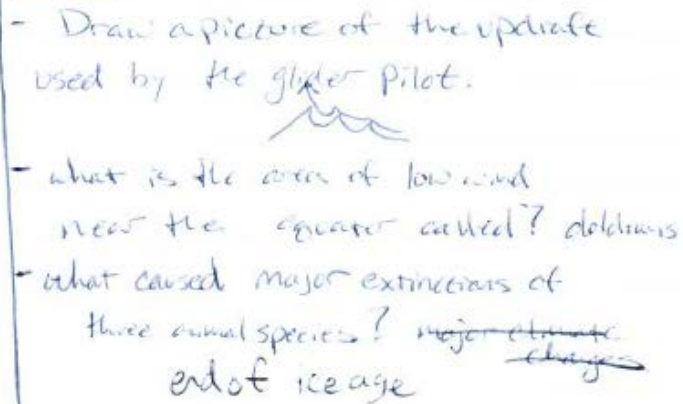 - Draw a picture of the updraft
used by the glider pilot.
- what is the area of low wind
near the equator called? doldrums
- what caused major extinctions of
three animal species? major climate
changes
end of ice age